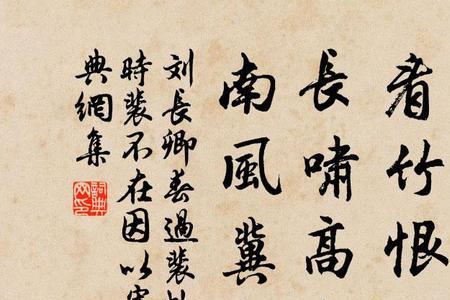 看竹恨
長嘯高
南風冀
刘長卿春過裴
時裴不在因以
典網集
詞典网印